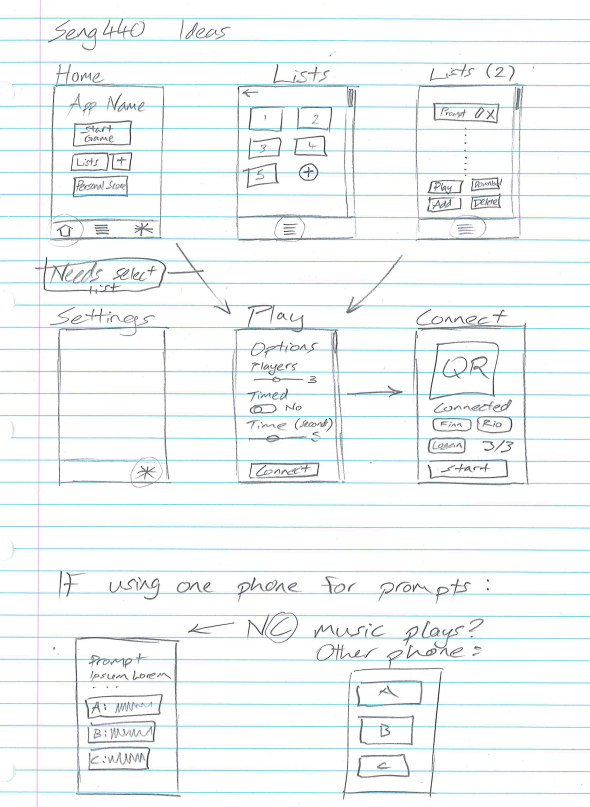 Seng440 Ideas
Home
App Name
Start
Game
Lists +
Personal Score
Lists
1 2
3 4
5 +
Lists (2)
Prompt X
Play Download
Add Delete
Needs select
list
Settings
Play
Options
Players
3
Timed
No
Time (Seconds)
5
Connect
Connect
QR
Connected
Finn Rio
Logan 3/3
Start
If using one phone for prompts :
NC music plays?
Other phone :
Prompt
Ipsum Lorem
. . .
A:
B:
C:
A
B
C